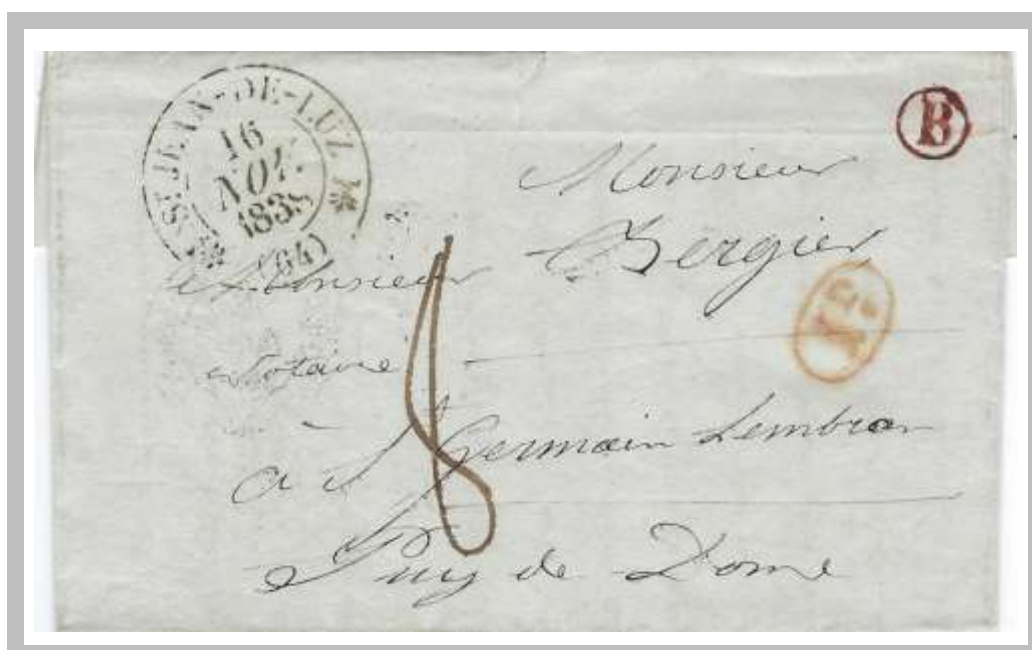 ST JEAN-DE-LUZ
16
NOV.
1838
(64)
B
Monsieur
Monsieur Bergier
Notaire
à St Germain Lembron
Puy de Dome
8